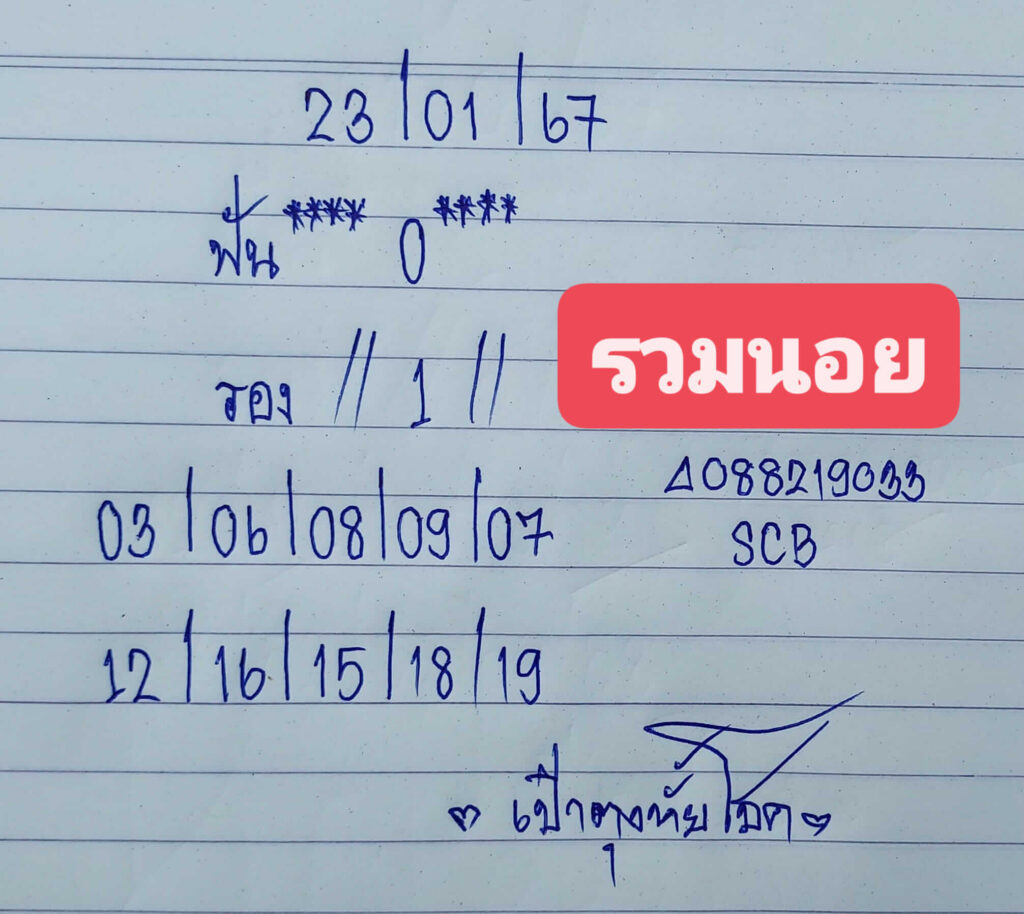 23/01/67
ฟัน**** 0****
รอง // 1 //
รวมนอย
03/06/08/09/07
△088219033
SCB
12/16/15/18/19
♡ เป๋าตุงหัยโชค ♡